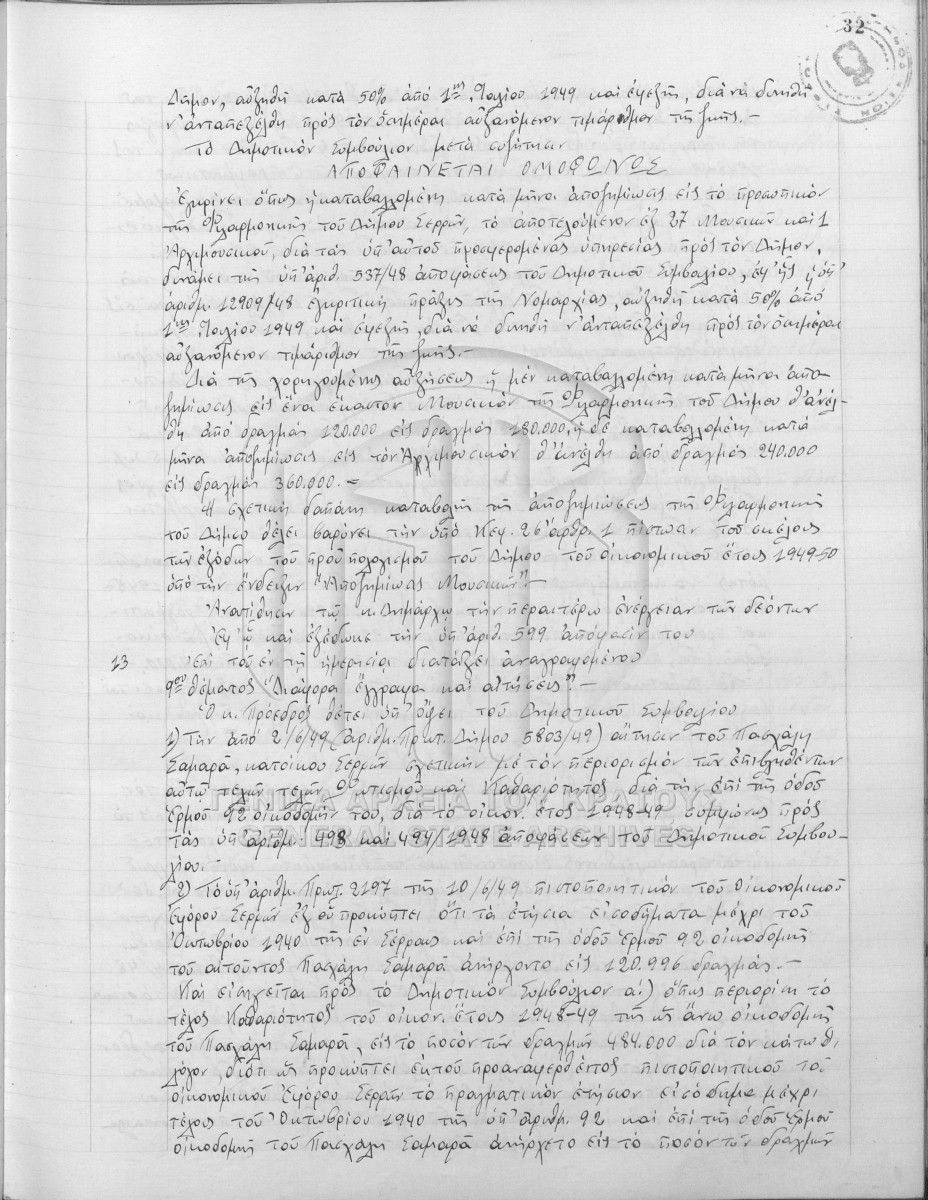 32
Δῆμον, αὐξηθῆ κατὰ 50% ἀπὸ 1ης Ἰουλίου 1949 καὶ ἐφεξῆς, διὰ νὰ δυνηθῆ
ν' ἀνταπεξέλθη πρὸς τὸν ὁσημέραι αὐξανόμενον τιμάριθμον τῆς ζωῆς.—
Τὸ Δημοτικὸν Συμβούλιον μετὰ συζήτησιν
ΑΠΟΦΑΙΝΕΤΑΙ ΟΜΟΦΩΝΩΣ
Ἐγκρίνει ὅπως ἡ καταβαλλομένη κατὰ μῆνα ἀποζημίωσις εἰς τὸ προσωπικὸν
τῆς Φιλαρμονικῆς τοῦ Δήμου Σερρῶν, τὸ ἀποτελούμενον ἐξ 27 Μουσικῶν καὶ 1
Ἀρχιμουσικοῦ, διὰ τὰς ὑπ' αὐτοῦ προσφερομένας ὑπηρεσίας πρὸς τὸν Δῆμον,
δυνάμει τῆς ὑπ' ἀριθ. 537/48 ἀποφάσεως τοῦ Δημοτικοῦ Συμβουλίου, ἐφ' ἧς ἡ ὑπ'
ἀριθμ. 12909/48 ἐγκριτικὴ πρᾶξις τῆς Νομαρχίας, αὐξηθῆ κατὰ 50% ἀπὸ
1ης Ἰουλίου 1949 καὶ ἐφεξῆς, διὰ νὰ δυνηθῆ ν' ἀνταπεξέλθη πρὸς τὸν ὁσημέραι
αὐξανόμενον τιμάριθμον τῆς ζωῆς.—
Διὰ τῆς χορηγουμένης αὐξήσεως ἡ μὲν καταβαλλομένη κατὰ μῆνα ἀπο-
ζημίωσις εἰς ἕνα ἕκαστον Μουσικὸν τῆς Φιλαρμονικῆς τοῦ Δήμου θ' ἀνέλ-
θη ἀπὸ δραχμὰς 120.000 εἰς δραχμὰς 180.000, ἡ δὲ καταβαλλομένη κατὰ
μῆνα ἀποζημίωσις εἰς τὸν Ἀρχιμουσικὸν θ' ἀνέλθη ἀπὸ δραχμὰς 240.000
εἰς δραχμὰς 360.000.—
Ἡ σχετικὴ δαπάνη καταβολῆς τῆς ἀποζημιώσεως τῆς Φιλαρμονικῆς
τοῦ Δήμου θέλει βαρύνει τὴν ὑπὸ Κεφ. 26 ἄρθρ. 1 πίστωσιν τοῦ σκέλους
τῶν ἐξόδων τοῦ προϋπολογισμοῦ τοῦ Δήμου τοῦ οἰκονομικοῦ ἔτους 1949-50
ὑπὸ τὴν ἔνδειξιν "Ἀποζημίωσις Μουσικῶν".—
Ἀνατίθησιν τῷ κ. Δημάρχῳ τὴν περαιτέρω ἐνέργειαν τῶν δεόντων
Ἐφ' ᾧ καὶ ἐξέδωκε τὴν ὑπ' ἀριθ. 599 ἀπόφασίν του
13 Ἐπὶ τοῦ ἐν τῇ ἡμερησίᾳ διατάξει ἀναγραφομένου
9ου θέματος "Διάφορα ἔγγραφα καὶ αἰτήσεις".—
Ὁ κ. Πρόεδρος θέτει ὑπ' ὄψει τοῦ Δημοτικοῦ Συμβουλίου
1) Τὴν ἀπὸ 2/6/49 (ἀριθμ. Πρωτ. Δήμου 5803/49) αἴτησιν τοῦ Πασχάλη
Σαμαρᾶ, κατοίκου Σερρῶν σχετικὴν μὲ τὸν περιορισμὸν τῶν ἐπιβληθέντων
αὐτῷ τελῶν Φωτισμοῦ καὶ Καθαριότητος διὰ τὴν ἐπὶ τῆς ὁδοῦ
Ἑρμοῦ 92 οἰκοδομήν του, διὰ τὸ οἰκον. ἔτος 1948-49 συμφώνως πρὸς
τὰς ὑπ' ἀριθμ. 498 καὶ 494/1948 ἀποφάσεων τοῦ Δημοτικοῦ Συμβου-
λίου.—
2) Τὸ ὑπ' ἀριθμ. Πρωτ. 2197 τῆς 10/6/49 πιστοποιητικὸν τοῦ Οἰκονομικοῦ
Ἐφόρου Σερρῶν ἐξ οὗ προκύπτει ὅτι τὰ ἐτήσια εἰσοδήματα μέχρι τοῦ
Ὀκτωβρίου 1940 τῆς ἐν Σέρραις καὶ ἐπὶ τῆς ὁδοῦ Ἑρμοῦ 92 οἰκοδομῆς
τοῦ αἰτοῦντος Πασχάλη Σαμαρᾶ ἀνήρχοντο εἰς 120.996 δραχμάς.—
Καὶ εἰσηγεῖται πρὸς τὸ Δημοτικὸν Συμβούλιον α) ὅπως περιορίσῃ τὸ
τέλος Καθαριότητος τοῦ οἰκον. ἔτους 1948-49 τῆς ὡς ἄνω οἰκοδομῆς
τοῦ Πασχάλη Σαμαρᾶ, εἰς τὸ ποσὸν τῶν δραχμῶν 484.000 διὰ τὸν κάτωθι
λόγον, διότι ὡς προκύπτει ἐκ τοῦ προαναφερθέντος πιστοποιητικοῦ τοῦ
οἰκονομικοῦ Ἐφόρου Σερρῶν τὸ πραγματικὸν ἐτήσιον εἰσόδημα μέχρι
τέλους τοῦ Ὀκτωβρίου 1940 τῆς ὑπ' ἀριθμ. 92 καὶ ἐπὶ τῆς ὁδοῦ Ἑρμοῦ
οἰκοδομῆς τοῦ Πασχάλη Σαμαρᾶ ἀνήρχετο εἰς τὸ ποσὸν τῶν δραχμῶν
ΓΕΝΙΚΑ ΑΡΧΕΙΑ ΤΟΥ ΚΡΑΤΟΥΣ